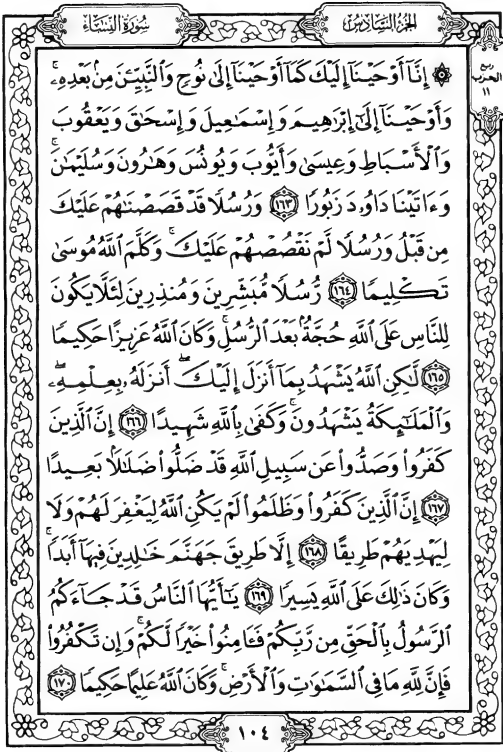 الجزء السادس
سورة النساء
ربع
الحزب
١١
۞ إِنَّا أَوْحَيْنَا إِلَيْكَ كَمَا أَوْحَيْنَا إِلَىٰ نُوحٍ وَالنَّبِيِّينَ مِنْ بَعْدِهِ ۚ
وَأَوْحَيْنَا إِلَىٰ إِبْرَاهِيمَ وَإِسْمَاعِيلَ وَإِسْحَاقَ وَيَعْقُوبَ
وَالْأَسْبَاطِ وَعِيسَىٰ وَأَيُّوبَ وَيُونُسَ وَهَارُونَ وَسُلَيْمَانَ ۚ
وَءَاتَيْنَا دَاوُۥدَ زَبُورًا ١٦٣ وَرُسُلًا قَدْ قَصَصْنَاهُمْ عَلَيْكَ
مِن قَبْلُ وَرُسُلًا لَّمْ نَقْصُصْهُمْ عَلَيْكَ ۚ وَكَلَّمَ اللَّهُ مُوسَىٰ
تَكْلِيمًا ١٦٤ رُّسُلًا مُّبَشِّرِينَ وَمُنذِرِينَ لِئَلَّا يَكُونَ
لِلنَّاسِ عَلَى اللَّهِ حُجَّةٌ بَعْدَ الرُّسُلِ ۚ وَكَانَ اللَّهُ عَزِيزًا حَكِيمًا
١٦٥ لَّٰكِنِ اللَّهُ يَشْهَدُ بِمَا أَنزَلَ إِلَيْكَ ۖ أَنزَلَهُۥ بِعِلْمِهِۦ ۖ
وَالْمَلَائِكَةُ يَشْهَدُونَ ۚ وَكَفَىٰ بِاللَّهِ شَهِيدًا ١٦٦ إِنَّ الَّذِينَ
كَفَرُوا وَصَدُّوا عَن سَبِيلِ اللَّهِ قَدْ ضَلُّوا ضَلَالًا بَعِيدًا
١٦٧ إِنَّ الَّذِينَ كَفَرُوا وَظَلَمُوا لَمْ يَكُنِ اللَّهُ لِيَغْفِرَ لَهُمْ وَلَا
لِيَهْدِيَهُمْ طَرِيقًا ١٦٨ إِلَّا طَرِيقَ جَهَنَّمَ خَالِدِينَ فِيهَا أَبَدًا ۚ
وَكَانَ ذَٰلِكَ عَلَى اللَّهِ يَسِيرًا ١٦٩ يَا أَيُّهَا النَّاسُ قَدْ جَاءَكُمُ
الرَّسُولُ بِالْحَقِّ مِن رَّبِّكُمْ فَـَٔامِنُوا خَيْرًا لَّكُمْ ۚ وَإِن تَكْفُرُوا
فَإِنَّ لِلَّهِ مَا فِي السَّمَاوَاتِ وَالْأَرْضِ ۚ وَكَانَ اللَّهُ عَلِيمًا حَكِيمًا ١٧٠
١٠٤